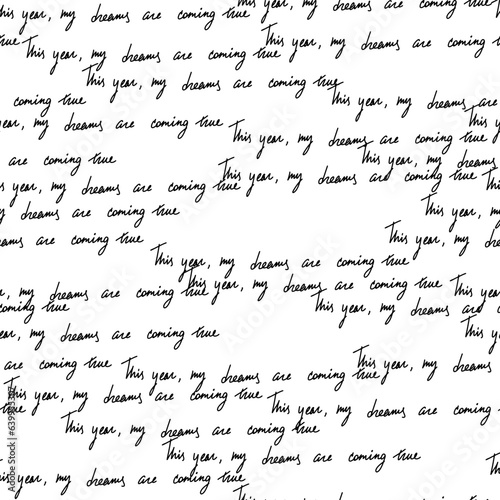 this year, my dreams are coming true This year, my dreams are coming true
true This year, my dreams are coming true my dreams are coming
This year, my dreams are coming true
coming true This year, my dreams are
year, my dreams are coming true This year, my dreams are coming true This y
are coming true This year, my dreams
year, my dreams are coming true This year, my dreams are coming true This
my dreams are coming true This year, m
dreams are coming true This year, my dre
This year, my dreams are coming true
my dreams are coming true This year, my dreams are coming true This year
coming true This year, my dreams are
year, my dreams are coming true This y
are coming true This year, my dreams are coming true This year, my dreams
This year, my dreams are coming true
true This year, my dreams are coming
This year, my dreams are coming true
This year, my dreams are coming true
this year, my dreams are coming true This
This year, my dreams are coming true
Adobe Stock